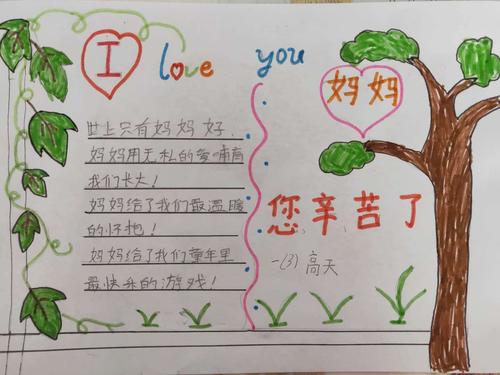 I love you
世上只有妈妈好，
妈妈用无私的爱哺育
我们长大！
妈妈给了我们最温暖
的怀抱！
妈妈给了我们童年里
最快乐的游戏！
妈妈
您辛苦了
一(3) 高天